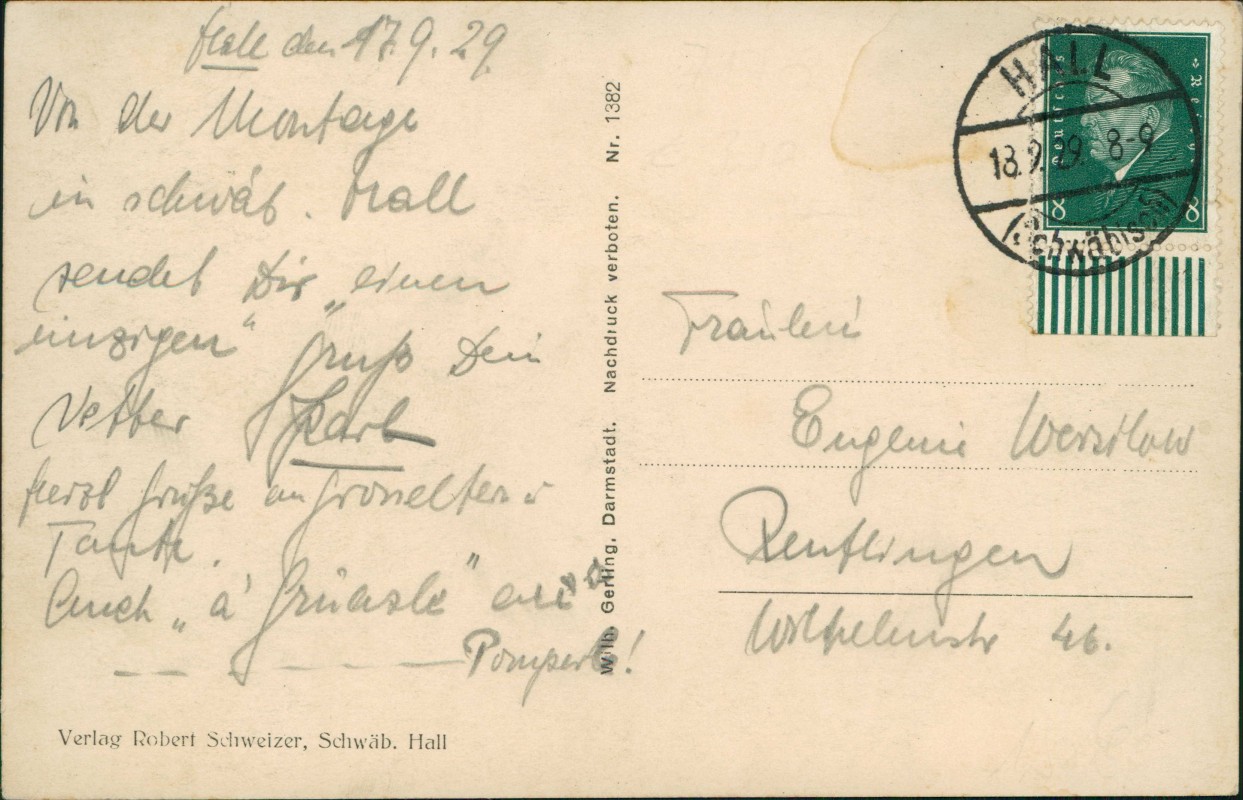 Hall den 17.9.29
Von der Montage
in schwäb. Hall
sendet Dir „einen
einzigen“ Gruß Dein
Vetter Karl
Herzl Grüße an Groseltern u
Tante.
Auch „a' Grüasle“ an
Pomperle!
Verlag Robert Schweizer, Schwäb. Hall
Wilh. Gerling, Darmstadt. Nachdruck verboten. Nr. 1382
HALL
18.9.29. 8-9
(Schwäbisch)
Deutsches Reich
8 8
Fräulein
Eugenie
Reutlingen
Wilhelmstr 46.